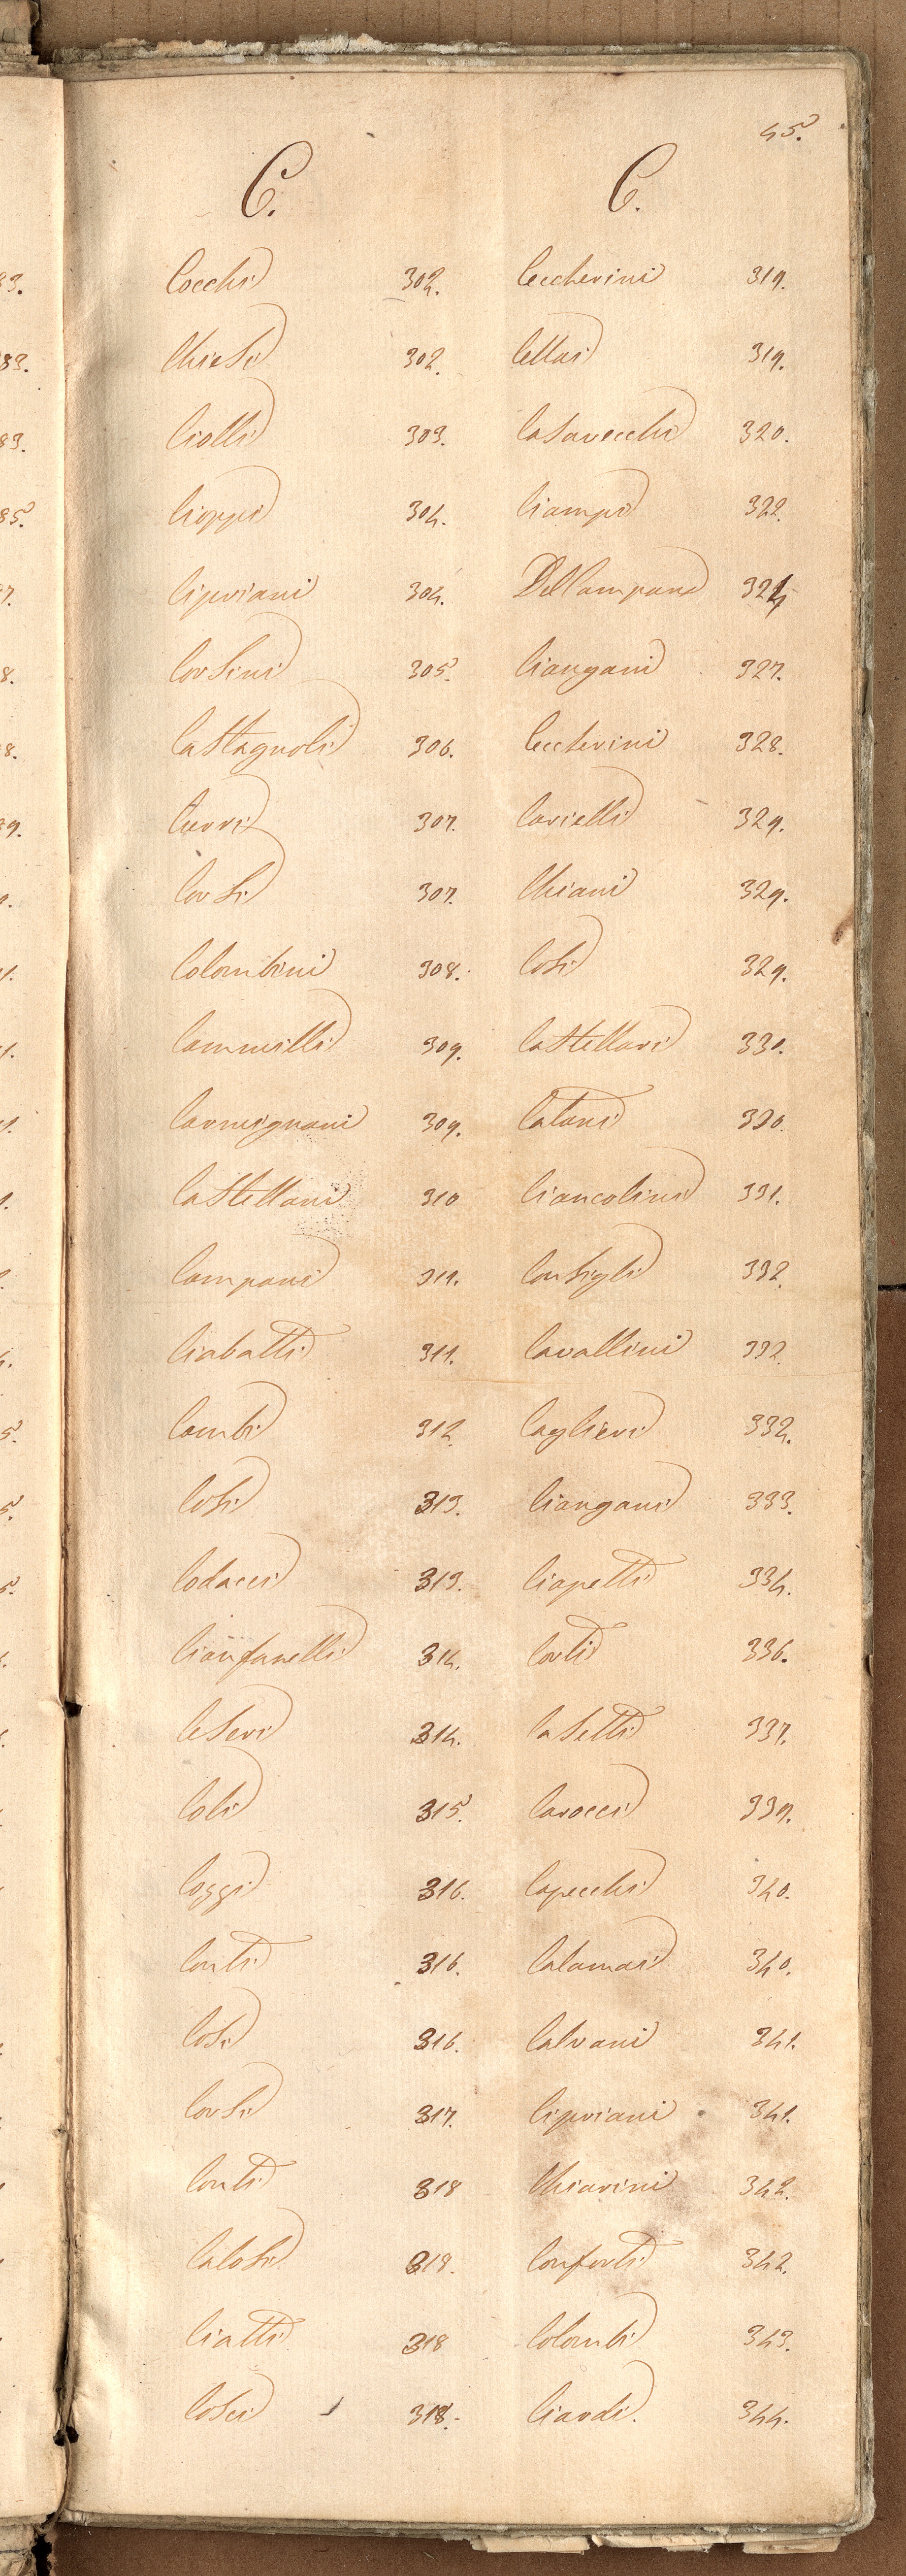 45.
C.
Cocchi 302.
Chiesi 302.
Ciolli 303.
Cioppi 304.
Cipriani 304.
Corsini 305.
Castagnoli 306.
Cerri 307.
Corsi 307.
Colombini 308.
Cammilli 309.
Carmignani 309.
Castellani 310
Campani 311.
Ciabatti 311.
Cambi 312.
Cosi 313.
Codacci 313.
Cianfanelli 314.
Ceseri 314.
Coli 315.
Coggi 316.
Conti 316.
Cosi 316.
Corsi 317.
Conti 318
Calosi 318.
Ciatti 318
Cosci 318.
C.
Ceccherini 319.
Cellai 319.
Casavecchi 320.
Ciampi 322.
Del Campana 324
Ciangani 327.
Ceccherini 328.
Carielli 329.
Chiani 329.
Cosi 329.
Castellari 330.
Catani 330.
Ciancolini 331.
Consigli 332.
Cavallini 332.
Caglieri 332.
Ciangani 333.
Ciapetti 334.
Corti 336.
Casetti 337.
Carocci 339.
Capecchi 340.
Calamai 340.
Calvani 341.
Cipriani 341.
Chiarini 342.
Conforti 342.
Colombi 343.
Ciardi. 344.
83.
83.
83.
85.
7.
8.
8.
89.